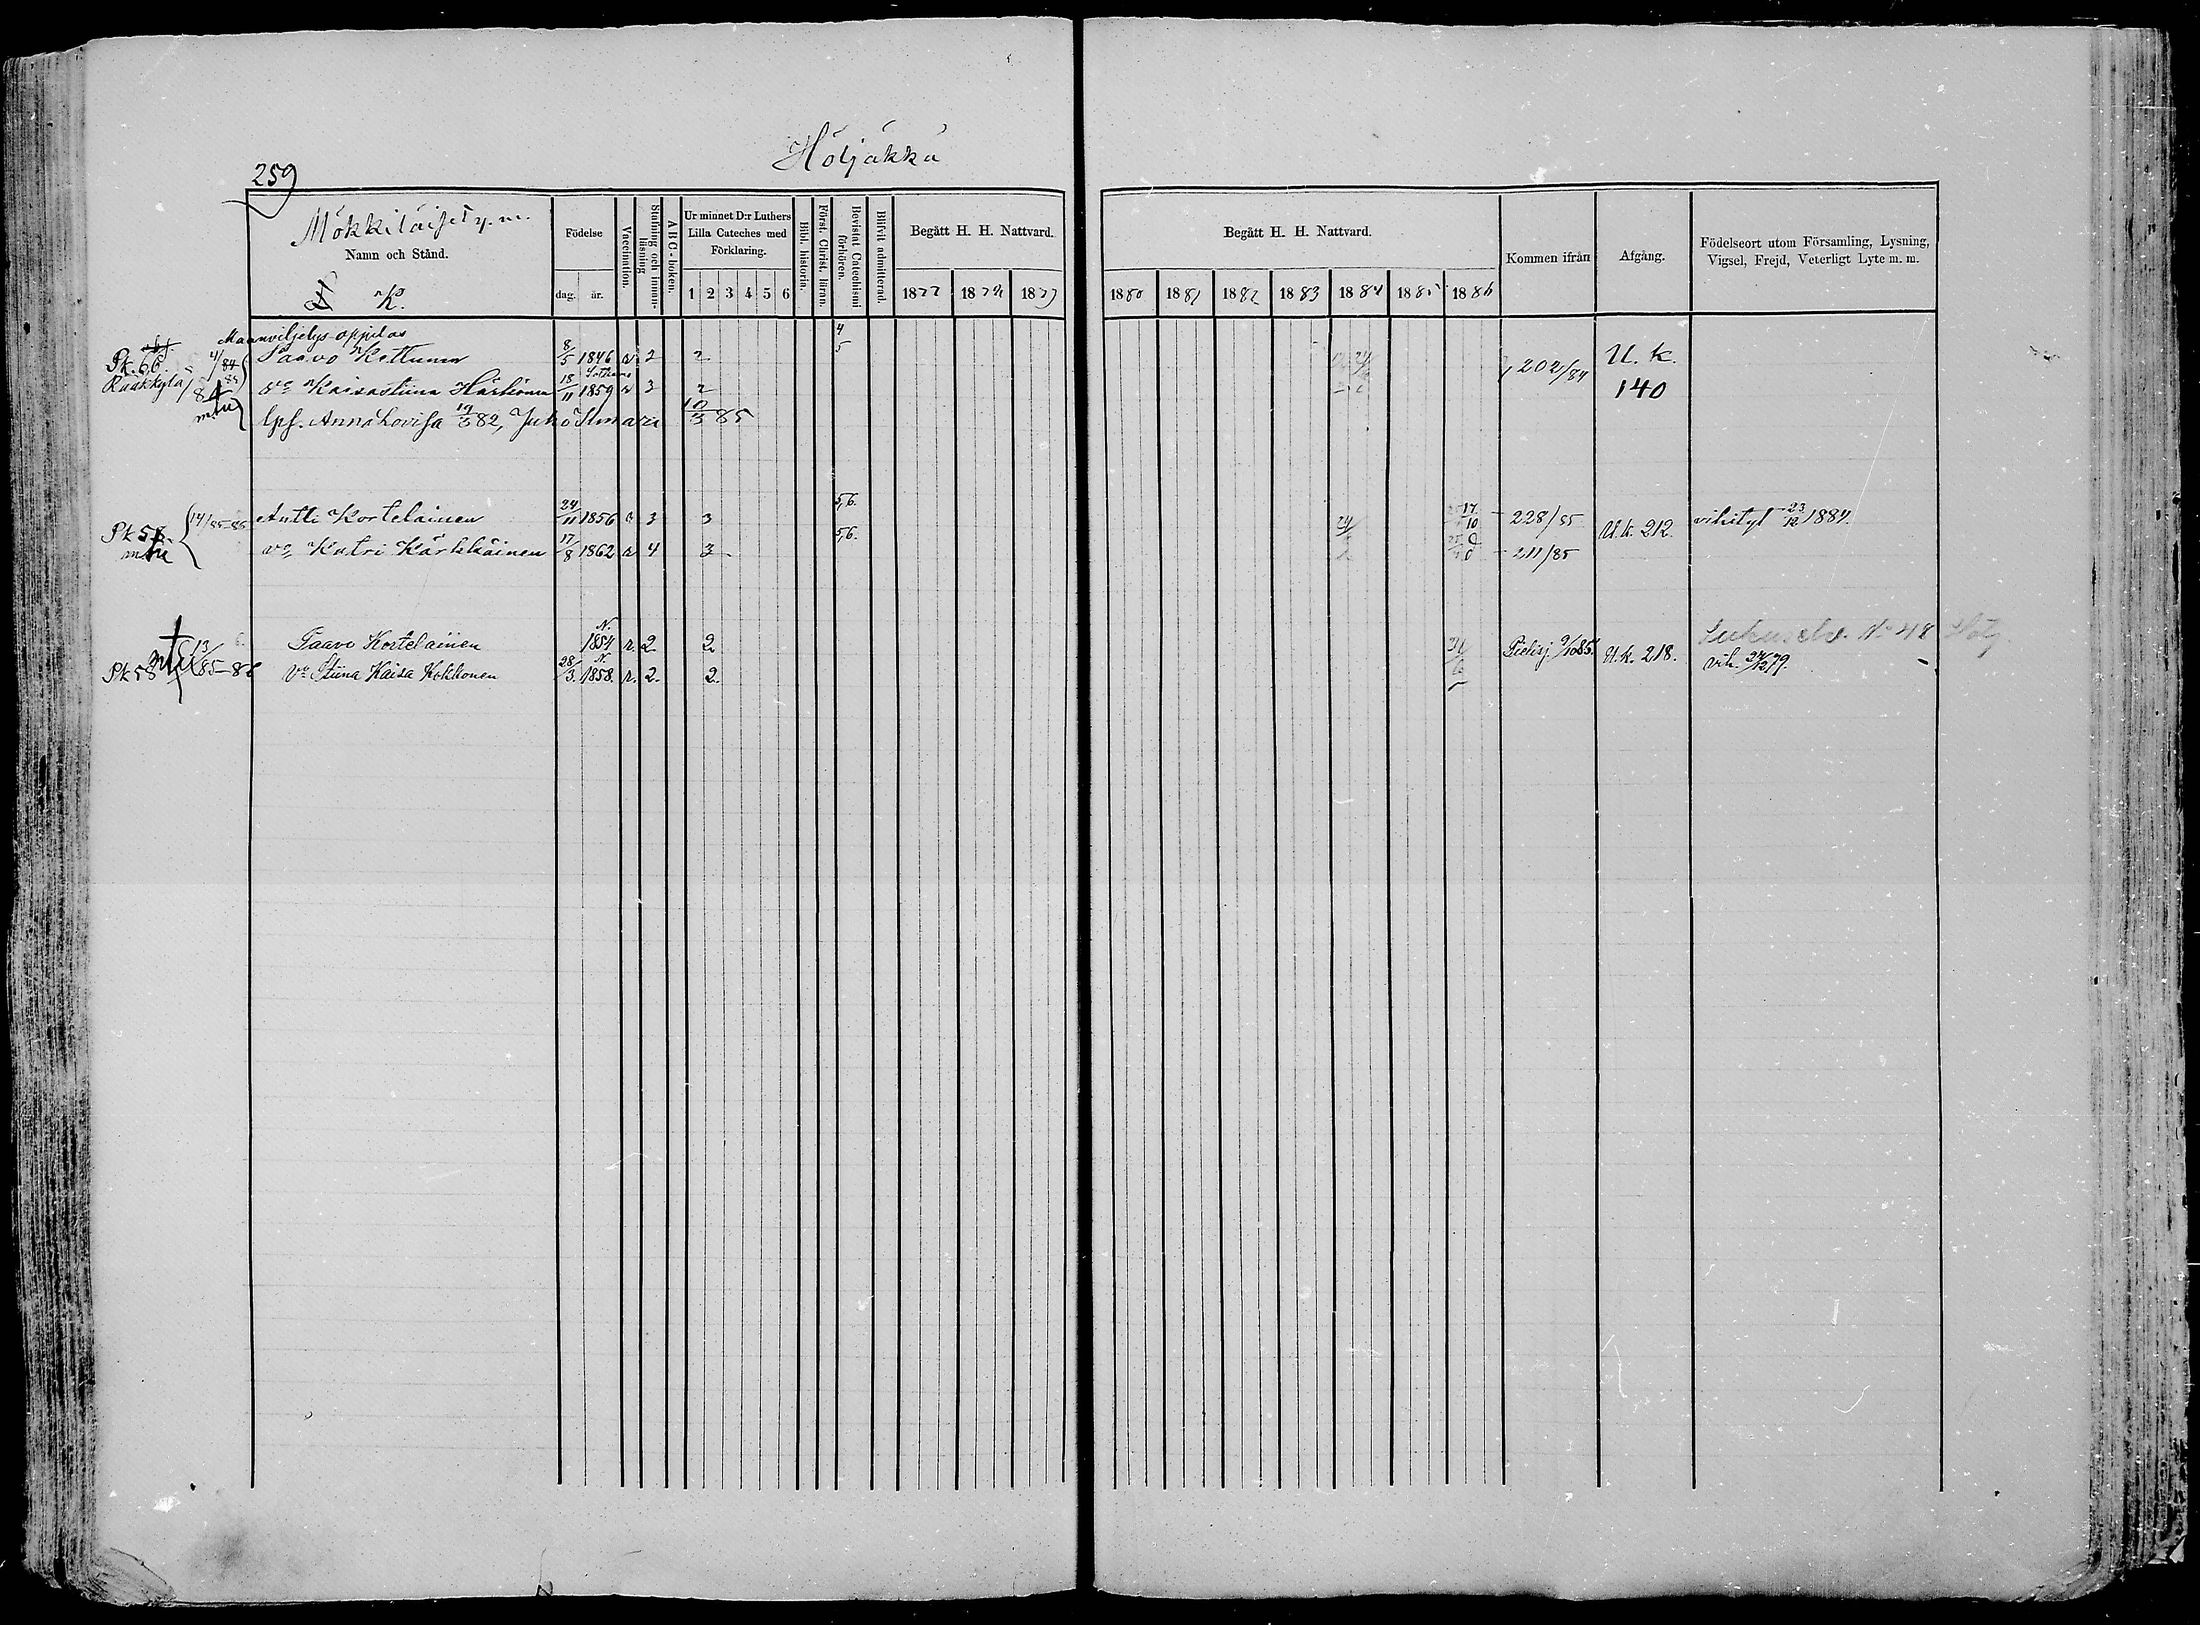 Höljäkkä
259
Mökkiläiset y.m.
Namn och Stånd.
K.
Födelse
dag. år.
Vaccination.
Stafning och innanläsning
A B C - boken.
Ur minnet D:r Luthers Lilla Cateches med Förklaring.
1 2 3 4 5 6
Bibl. historia.
Först. Christ. läran.
Bevistat Catechismi förhören.
Blifvit admitterad.
Begått H. H. Nattvard.
1877 1878 1879
Begått H. H. Nattvard.
1880 1881 1882 1883 1884 1885 1886
Kommen ifrån
Afgång.
Födelseort utom Församling, Lysning, Vigsel, Frejd, Veterligt Lyte m. m.
Maanviljelys-oppilas
Pk. 66. Paavo Kettunen 8/5 1846 v 2 2 4 5 202/84 U. k. 140
Rääkkylä vo Kaisastiina Härkönen 18/11 1859 v 3 2
lps. Anna Lovisa 82, Juho Ilmari 10/3 85
Pk 58. 14/85-86 Antti Kortelainen 24/11 1856 v 3 3 5,6. 228/85 U. k. 212. vihityt 23/12 1884.
vo Katri Kärkkäinen 17/8 1862 v 4 3 5,6. 211/85
13/85-86 Paavo Kortelainen N. 1854 r. 2. 2 Pielisj. U. k. 218. No 48
Pk 58 vo Stiina Kaisa Kokkonen 28/3. N. 1858. r. 2. 2. vih. 79.